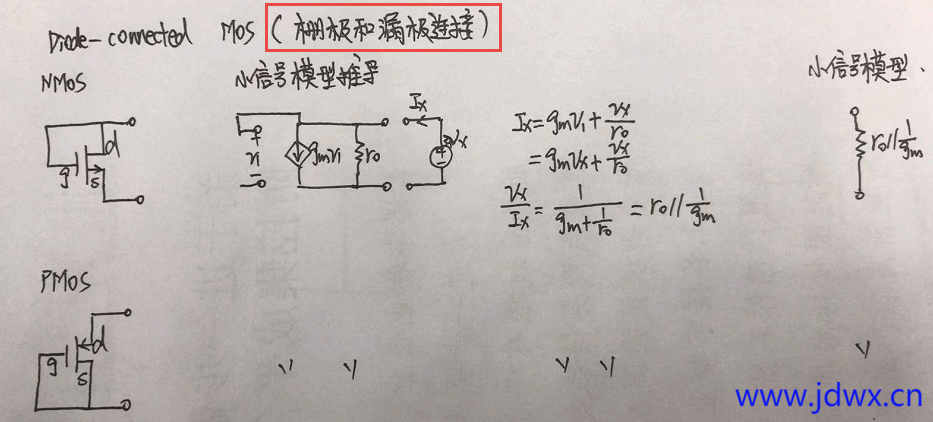 Diode-connected MOS (栅极和漏极连接)
NMOS
小信号模型推导
小信号模型.
d
g
s
+
vi
-
gmvi
ro
Ix
+
-
vx
Ix=gmvi+vx/ro
=gmvx+vx/ro
vx/Ix=1/(gm+1/ro)=ro//1/gm
ro//1/gm
PMOS
d
g
s
www.jdwx.cn